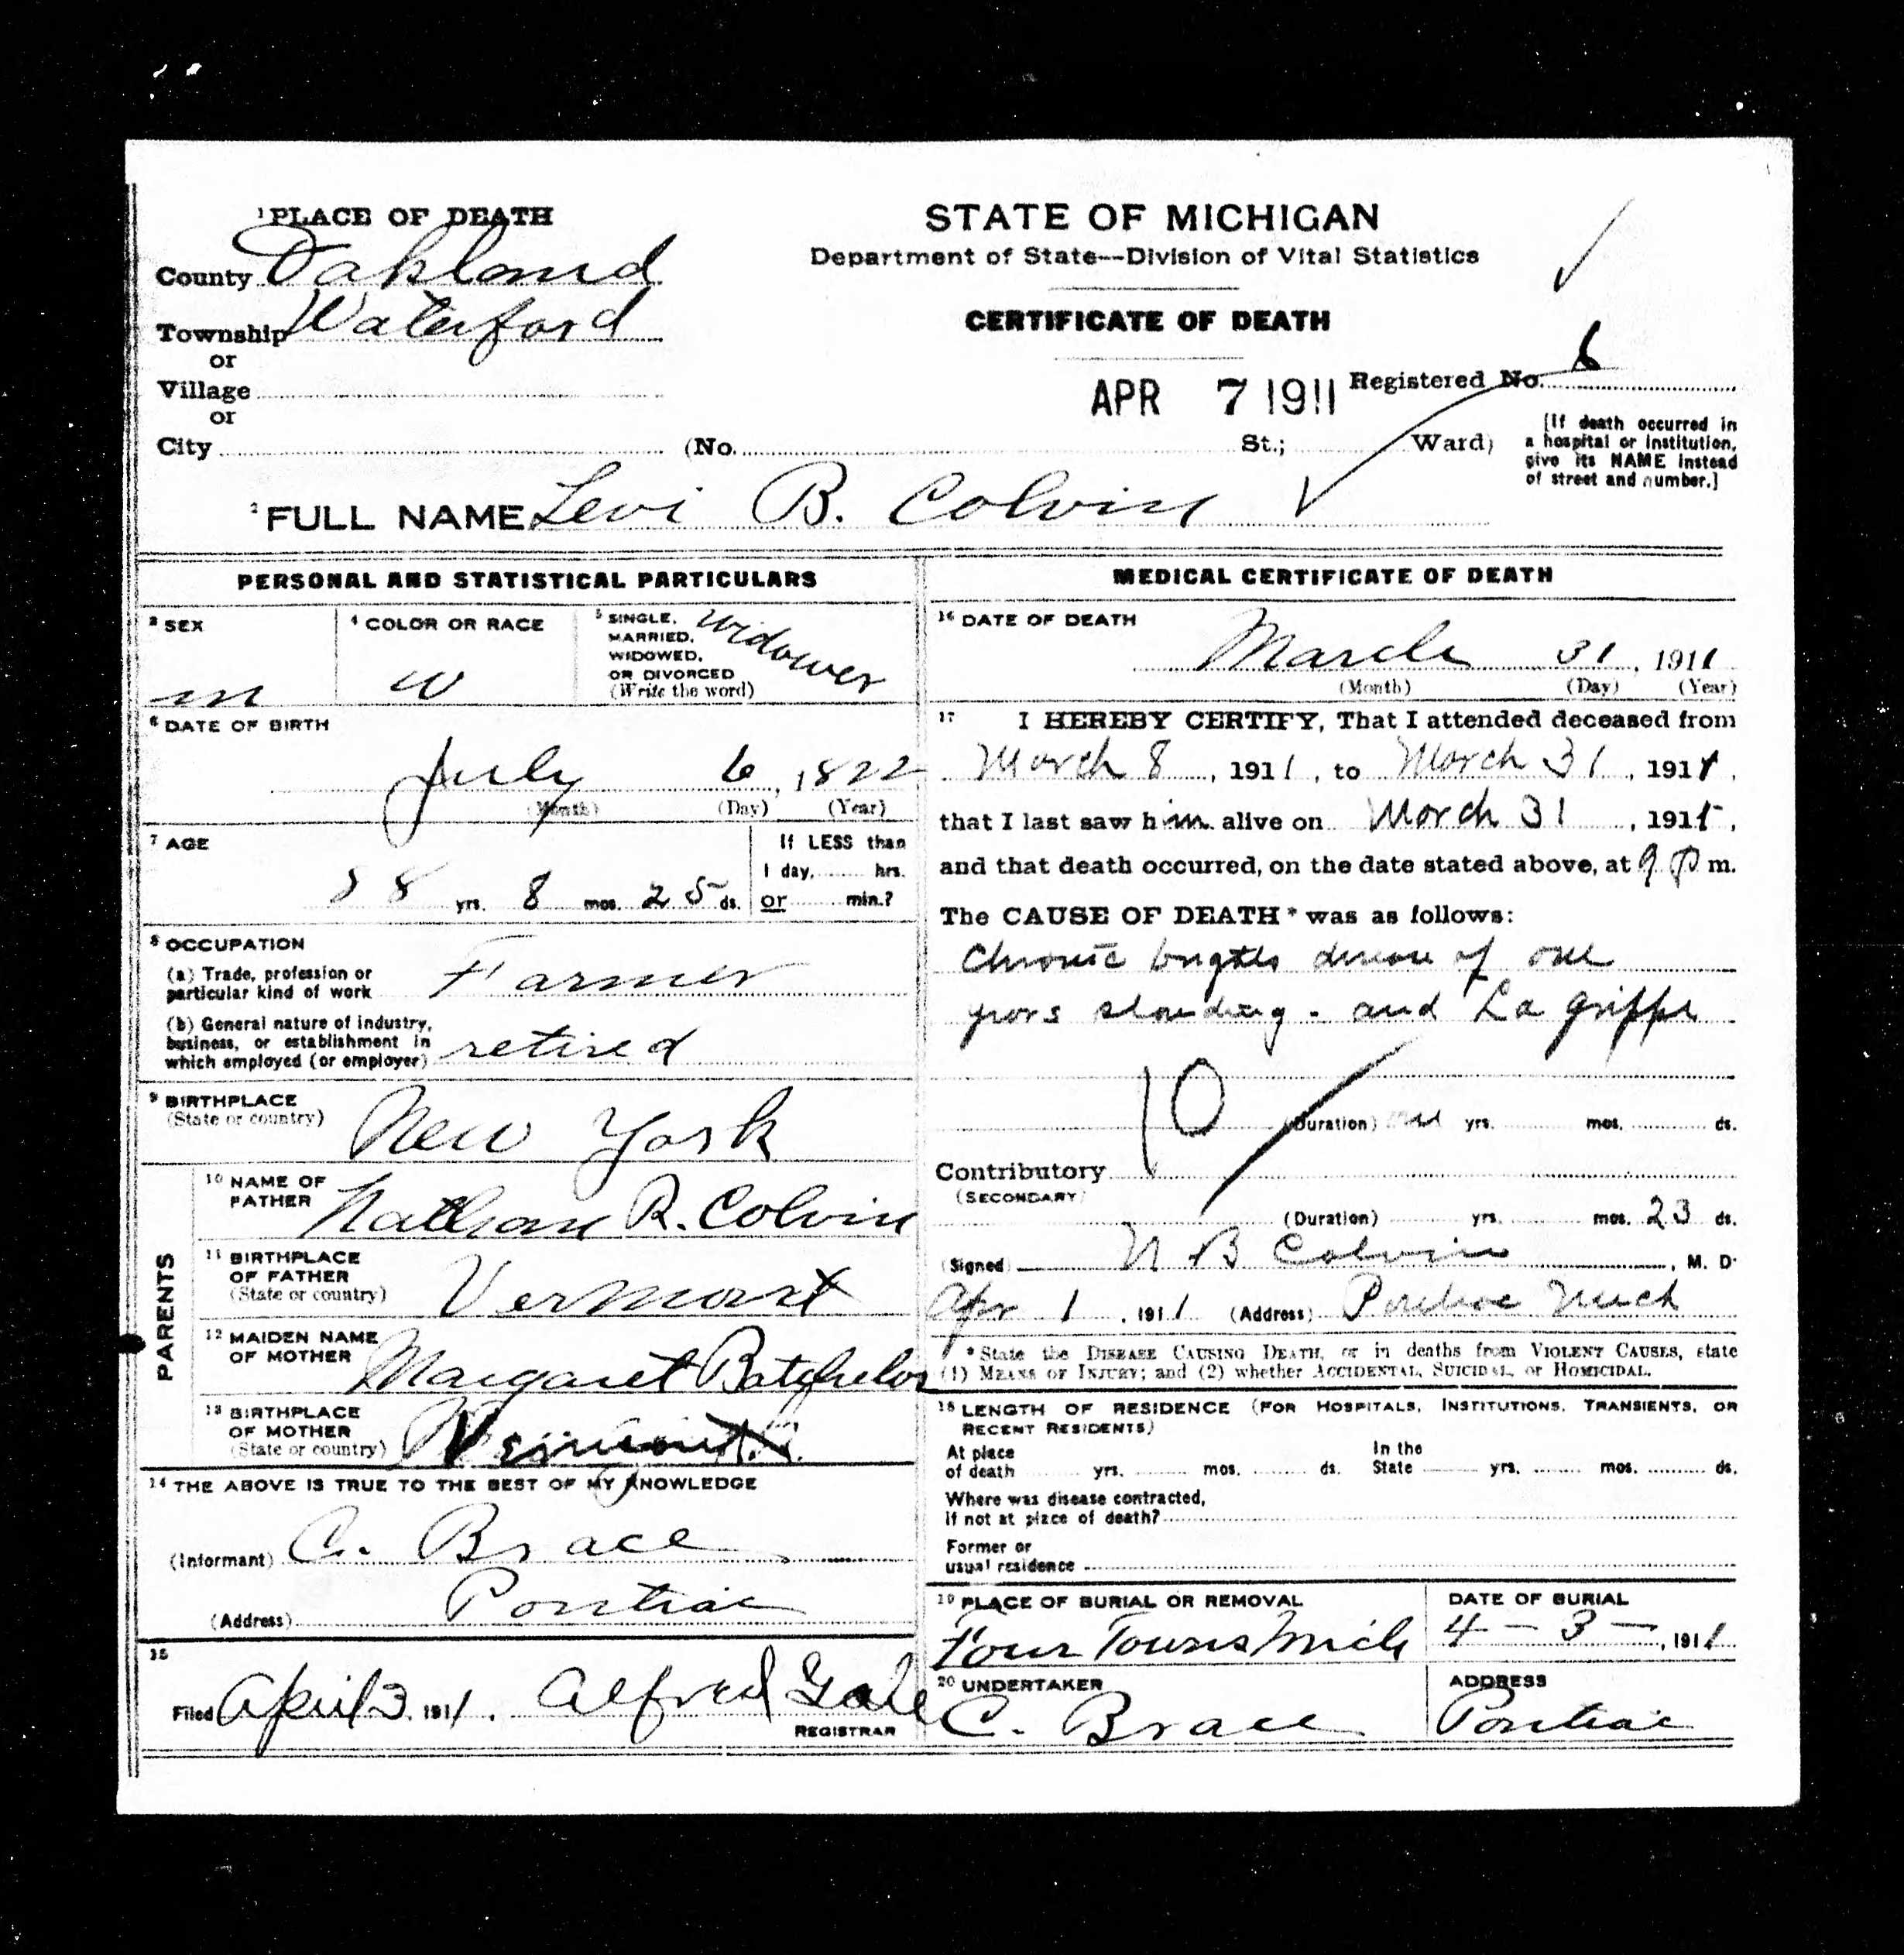 1 PLACE OF DEATH
County Oakland
Township Waterford
or
Village
or
City (No. St.; Ward)
STATE OF MICHIGAN
Department of State--Division of Vital Statistics
CERTIFICATE OF DEATH
APR 7 1911
Registered No. 6
[If death occurred in
a hospital or institution,
give its NAME instead
of street and number.]
2 FULL NAME Levi B. Colvin
PERSONAL AND STATISTICAL PARTICULARS
3 SEX
m
4 COLOR OR RACE
W
5 SINGLE,
MARRIED,
WIDOWED,
OR DIVORCED
(Write the word)
Widower
6 DATE OF BIRTH
July 6, 1822
(Month) (Day) (Year)
7 AGE
88 yrs. 8 mos. 25 ds.
If LESS than
1 day, hrs.
or min.?
8 OCCUPATION
(a) Trade, profession or
particular kind of work Farmer
(b) General nature of industry,
business, or establishment in
which employed (or employer) retired
9 BIRTHPLACE
(State or country) New York
PARENTS
10 NAME OF
FATHER Nathan R. Colvin
11 BIRTHPLACE
OF FATHER
(State or country) Vermont
12 MAIDEN NAME
OF MOTHER Margaret Batchelor
13 BIRTHPLACE
OF MOTHER
(State or country) Vermont
14 THE ABOVE IS TRUE TO THE BEST OF MY KNOWLEDGE
(Informant) C. Brace
(Address) Pontiac
15
Filed April 3, 1911. Alfred Gale
REGISTRAR
MEDICAL CERTIFICATE OF DEATH
16 DATE OF DEATH
March 31, 1911
(Month) (Day) (Year)
17 I HEREBY CERTIFY, That I attended deceased from
March 8, 1911, to March 31, 1911,
that I last saw him alive on March 31, 1911,
and that death occurred, on the date stated above, at 9 P m.
The CAUSE OF DEATH* was as follows:
Chronic brights disease of one
years standing - and La grippe
10
(Duration) one yrs. mos. ds.
Contributory
(SECONDARY)
(Duration) yrs. mos. 23 ds.
(Signed) N B Colvin, M. D.
Apr 1, 1911 (Address) Pontiac Mich
*State the DISEASE CAUSING DEATH, or in deaths from VIOLENT CAUSES, state
(1) MEANS OF INJURY; and (2) whether ACCIDENTAL, SUICIDAL, or HOMICIDAL.
18 LENGTH OF RESIDENCE (FOR HOSPITALS, INSTITUTIONS, TRANSIENTS, OR
RECENT RESIDENTS)
At place
of death yrs. mos. ds.
In the
State yrs. mos. ds.
Where was disease contracted,
if not at place of death?
Former or
usual residence
19 PLACE OF BURIAL OR REMOVAL
Four Towns Mich
DATE OF BURIAL
4 - 3 -, 1911
20 UNDERTAKER
C. Brace
ADDRESS
Pontiac